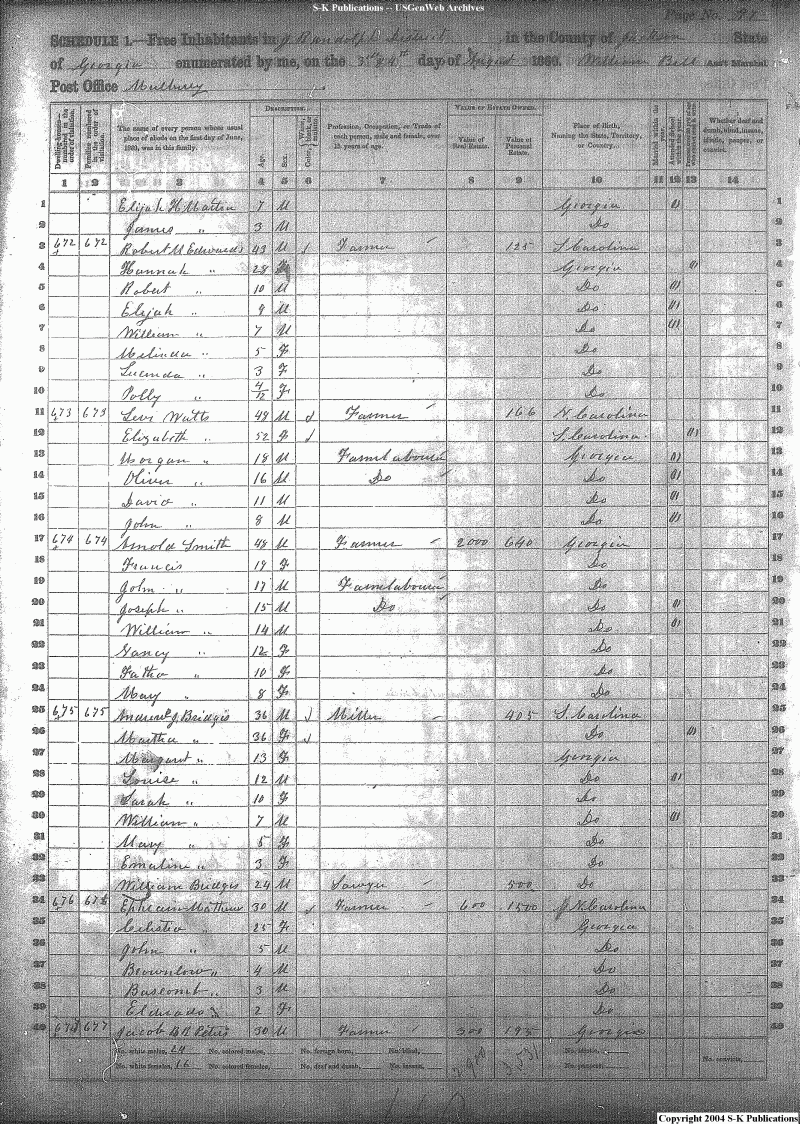 S-K Publications -- USGenWeb Archives
Page No. 91
SCHEDULE 1.—Free Inhabitants in J. Randolph District in the County of Jackson State
of Georgia enumerated by me, on the day of August 1860. William Bell Ass't Marshal
Post Office Mulberry
DESCRIPTION. VALUE OF ESTATE OWNED.
Dwelling-houses—numbered in the order of visitation.
Families numbered in the order of visitation.
The name of every person whose usual place of abode on the first day of June, 1860, was in this family.
Age.
Sex.
Profession, Occupation, or Trade of each person, male and female, over 15 years of age.
Value of Real Estate.
Value of Personal Estate.
Place of Birth, Naming the State, Territory, or Country.
Married within the year.
Attended School within the year.
Whether deaf and dumb, blind, insane, idiotic, pauper, or convict.
1 2 3 4 5 6 7 8 9 10 11 12 13 14
1 Elijah H Martin 7 M Georgia 1
2 James " 3 M Do 2
3 672 672 Robert M Edwards 43 M Farmer 125 S Carolina 3
4 Hannah " 28 Georgia 4
5 Robert " 10 M Do 5
6 Elijah " 9 M Do 6
7 William " 7 M Do 7
8 Melinda " 5 F Do 8
9 Lucinda " 3 F Do 9
10 Polly " 4/12 F Do 10
11 673 673 Levi Watts 48 M Farmer 166 N. Carolina 11
12 Elizabeth " 52 F S. Carolina 12
13 Morgan " 18 M Farmlabourer Georgia 13
14 Oliver " 16 M Do Do 14
15 David " 11 M Do 15
16 John " 8 M Do 16
17 674 674 Arnold Smith 48 M Farmer 2000 640 Georgia 17
18 Francis 19 F Do 18
19 John " 17 M Farmlabourer Do 19
20 Joseph " 15 M Do Do 20
21 William " 14 M Do 21
22 Nancy " 12 F Do 22
23 " 10 F Do 23
24 May " 8 F Do 24
25 675 675 Andrew J Bridgis 36 M Miller 405 S. Carolina 25
26 Martha " 36 F Do 26
27 Margaret " 13 F Georgia 27
28 Louise " 12 M Do 28
29 Sarah " 10 F Do 29
30 William " 7 M Do 30
31 Mary " 5 F Do 31
32 Emaline " 3 F Do 32
33 William Bridgis 24 M Sawyer 500 Do 33
34 676 676 Ephraim Mathew 30 M Farmer 600 1500 N. Carolina 34
35 Celistia " 25 F Georgia 35
36 John " 5 M Do 36
37 Brownlow " 4 M Do 37
38 Bascomb " 3 M Do 38
39 " 2 F Do 39
40 677 677 Jacob 30 M Farmer 300 195 Georgia 40
No. white males, 24 No. colored males, No. foreign born, No. blind, No. idiotic, No. convicts,
No. white females, 16 No. colored females, No. deaf and dumb, No. insane, 2900 3531 No. paupers,
Copyright 2004 S-K Publications